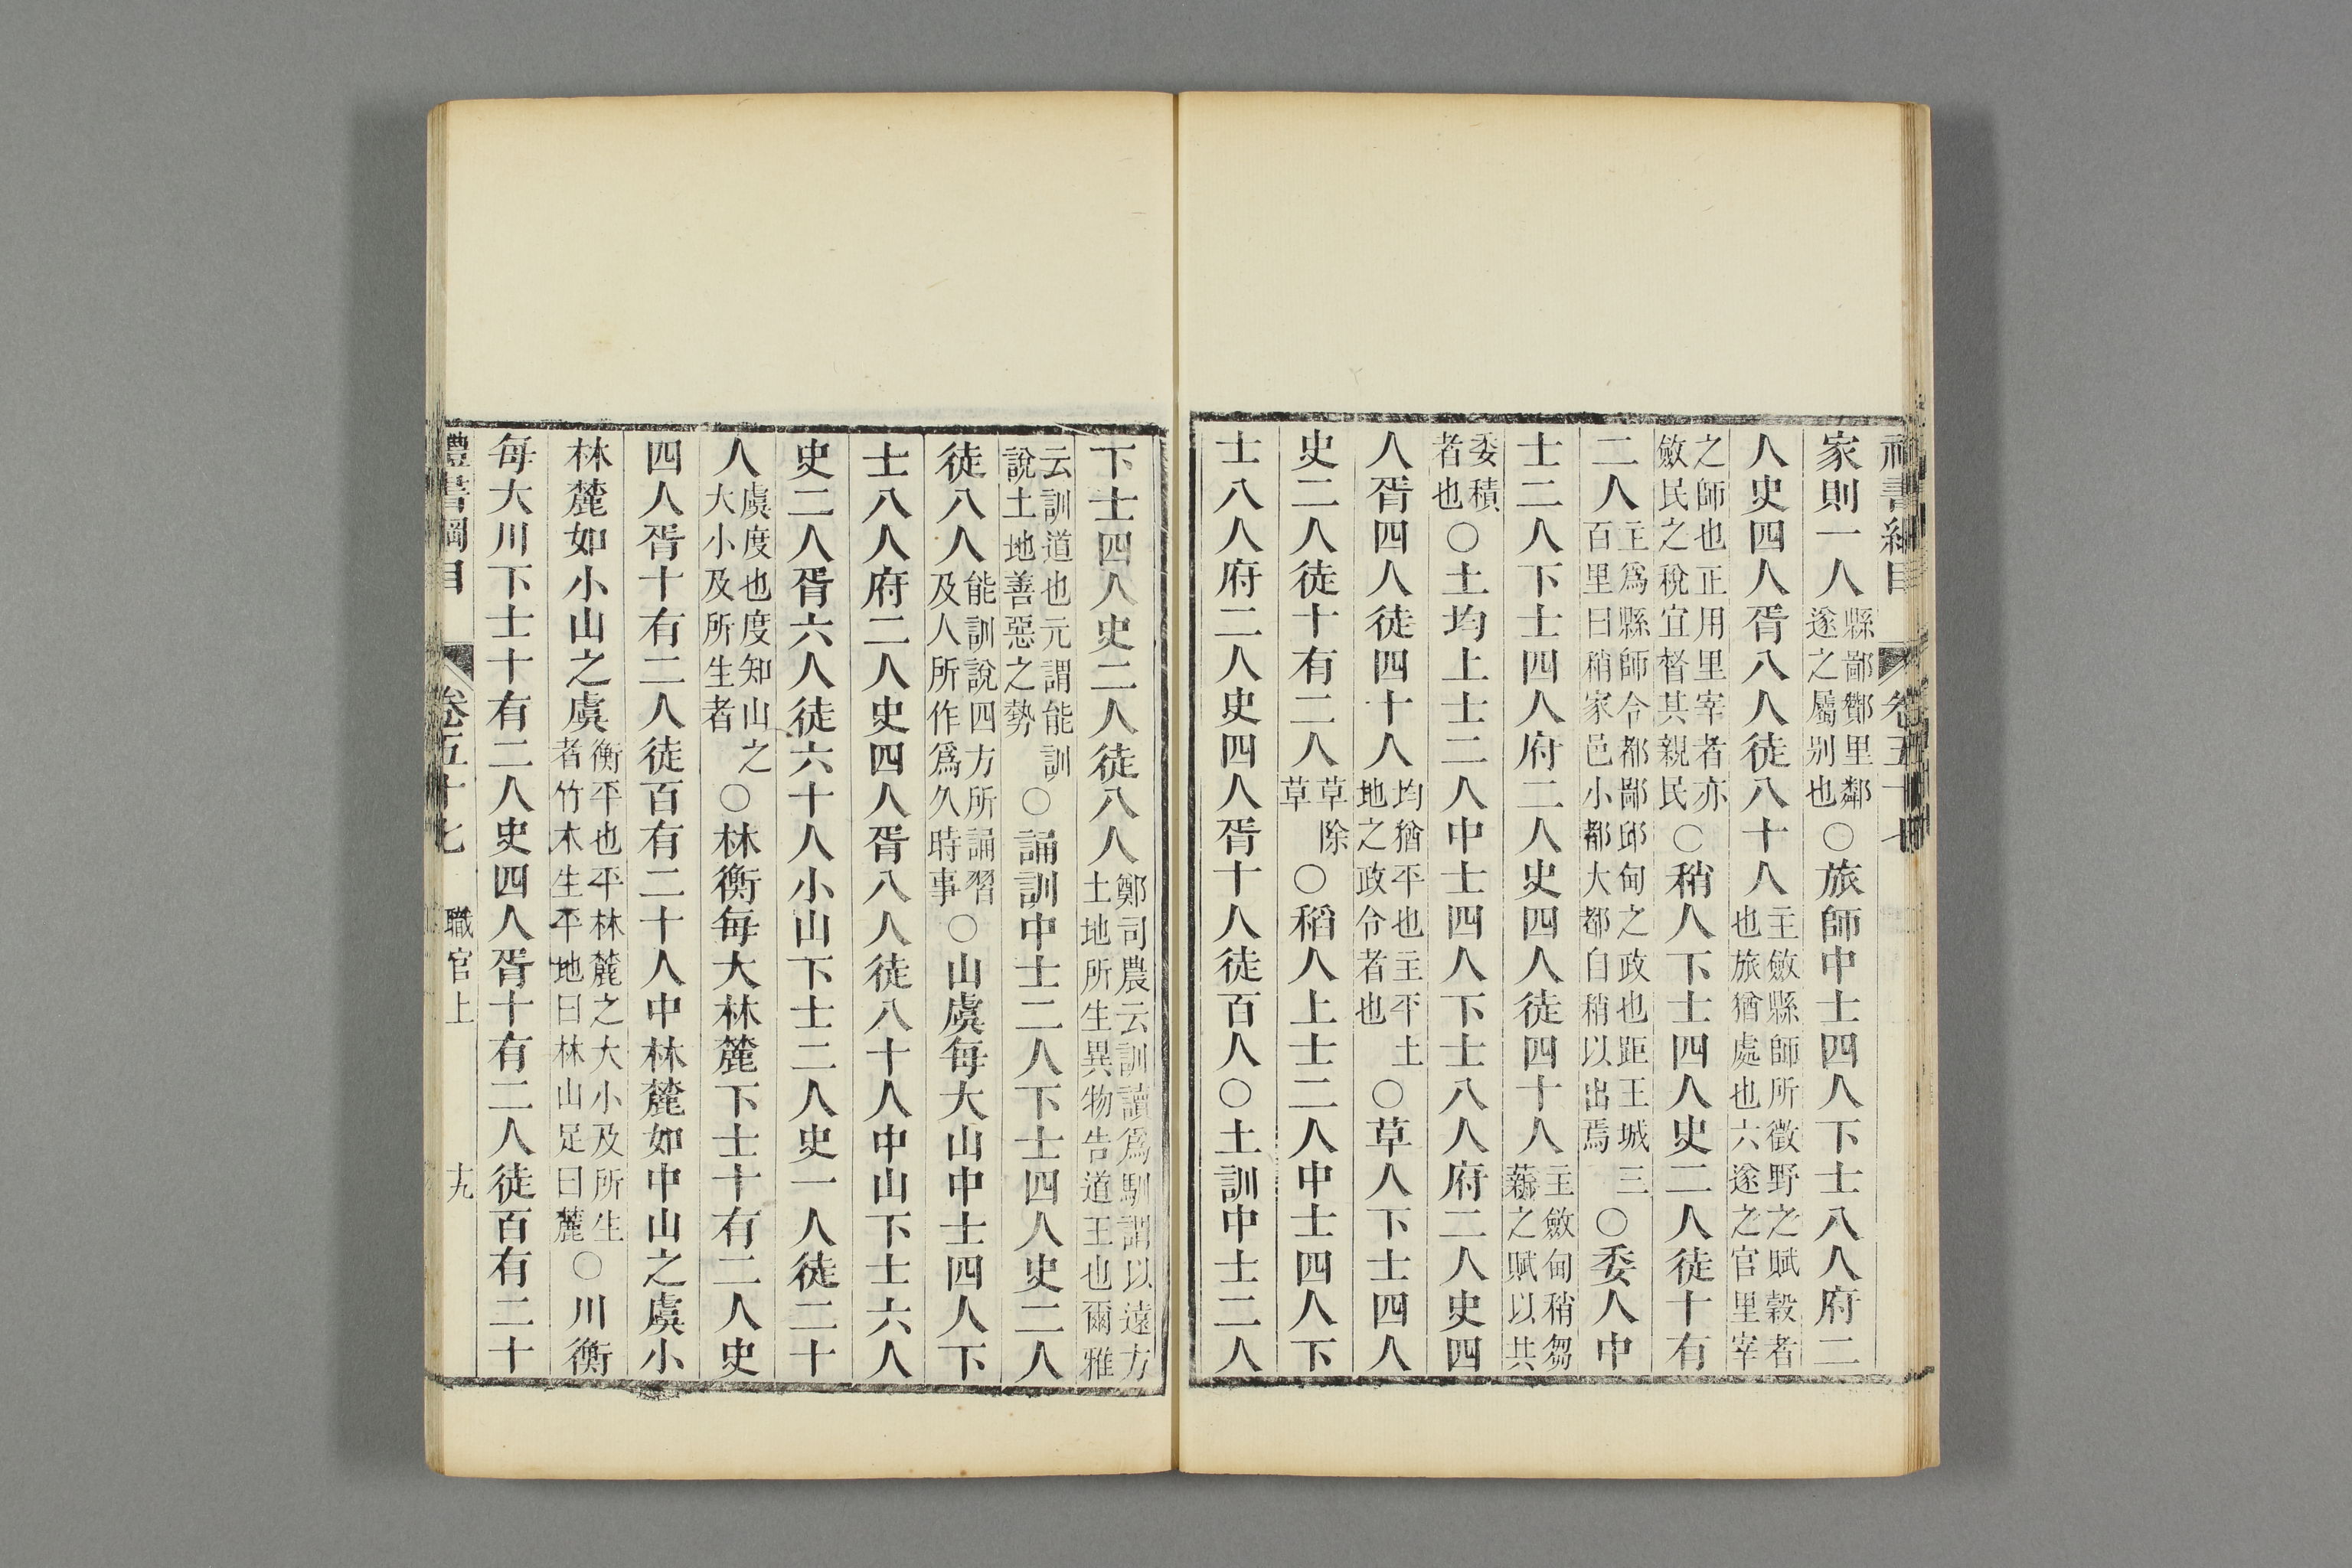 禮書綱目 卷五十七
家則一人縣鄙酇里鄰遂之屬別也○旅師中士四人下士八人府二
人史四人胥八人徒八十人主斂縣師所徵野之賦穀者也旅猶處也六遂之官里宰
之師也正用里宰者亦斂民之稅宜督其親民○稍人下士四人史二人徒十有
二人主爲縣師令都鄙邱甸之政也距王城三百里曰稍家邑小都大都自稍以出焉○委人中
士二人下士四人府二人史四人徒四十人主斂甸稍芻薪之賦以共
委積者也○土均上士二人中士四人下士八人府二人史四
人胥四人徒四十人均猶平也主平土地之政令者也○草人下士四人
史二人徒十有二人草除草○稻人上士二人中士四人下
士八人府二人史四人胥十人徒百人○土訓中士二人
下士四人史二人徒八人鄭司農云訓讀爲馴謂以遠方土地所生異物告道王也爾雅
云訓道也元謂能訓說土地善惡之勢○誦訓中士二人下士四人史二人
徒八人能訓說四方所誦習及人所作爲久時事○山虞每大山中士四人下
士八人府二人史四人胥八人徒八十人中山下士六人
史二人胥六人徒六十人小山下士二人史一人徒二十
人虞度也度知山之大小及所生者○林衡每大林麓下士十有二人史
四人胥十有二人徒百有二十人中林麓如中山之虞小
林麓如小山之虞衡平也平林麓之大小及所生者竹木生平地曰林山足曰麓○川衡
每大川下士十有二人史四人胥十有二人徒百有二十
禮書綱目 卷五十七 職官上 九